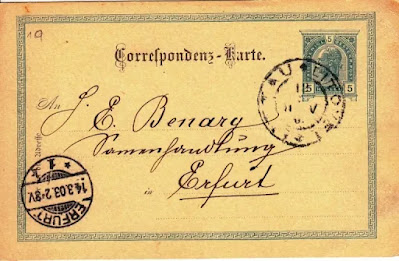 19
5
5 5
Correspondenz-Karte.
An
J. E. Benary
Samenhandlung
in Erfurt
Adresse
ERFURT
14.3.03.2-3V.
* 1 *